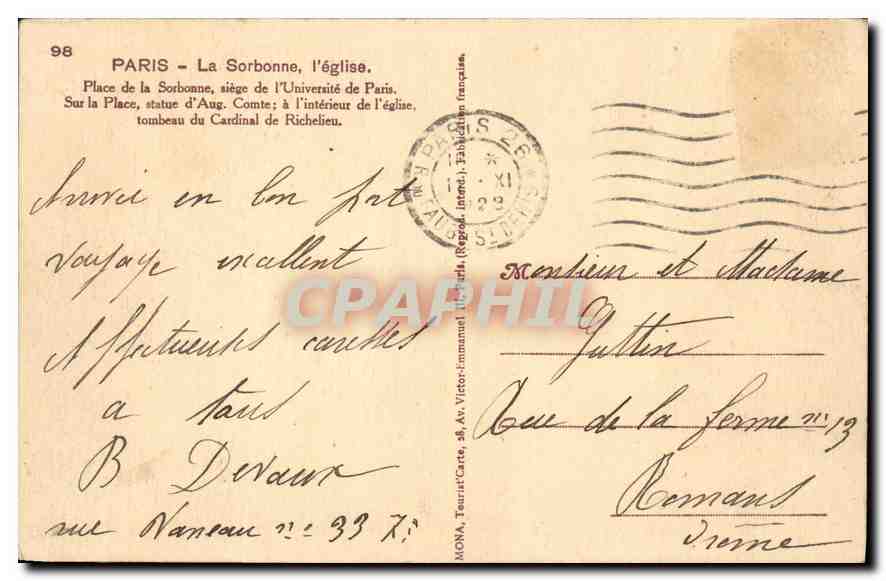 98
PARIS – La Sorbonne, l'église.
Place de la Sorbonne, siège de l'Université de Paris.
Sur la Place, statue d'Aug. Comte; à l'intérieur de l'église,
tombeau du Cardinal de Richelieu.
Arrivée en bon port
voyage excellent
Affectueuses caresses
a tous
B Devaux
rue Vaneau no 33 7e
MONA, Tourist'Carte, 28, Av. Victor-Emmanuel III, Paris. (Reprod. interd.). Fabrication française.
PARIS 26
XI
R. DU FAUBG ST DENIS
CPAPHIL
Monsieur et Madame
Guttin
Rue de la ferme no 13
Romans
Drôme